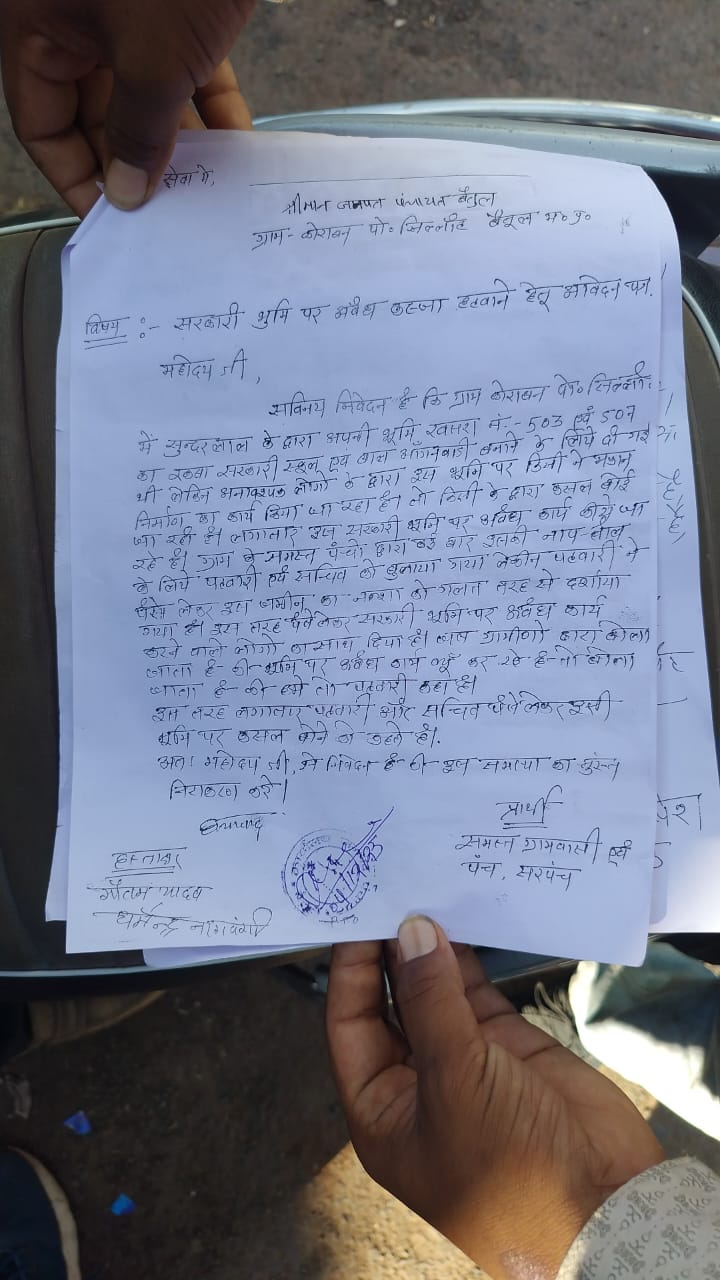 सेवा में,
श्रीमान जनपत पंचायत बैतुल
ग्राम - कोरावन पो॰ बैतूल म॰ प्र॰
विषय :- सरकारी भुमि पर अवैध कब्जा हटवाने हेतू आवेदन पत्र.
महोदय जी,
सविनय निवेदन है कि ग्राम कोरावन पो॰
में सुन्दरलाल के द्वारा अपनी भूमि खसरा नं. - 503 एवं 507
का रकबा सरकारी स्कूल एवं बाल आँगनवाडी बनाने के लिये दी गई
थी लेकिन अनावश्यक लोगो के द्वारा इस भूमि पर किसी ने मकान
निर्माण का कार्य किया जा रहा है। तो किसी के द्वारा फसल बोई
जा रही है। लगातार इस सरकारी भूमि पर अवैध कार्य किये जा
रहे है। ग्राम के समस्त पंचो द्वारा कई बार इसकी नाप-तौल
के लिये पटवारी एवं सचिव को बुलाया गया लेकीन पटवारी ने
पैसे लेकर इस जमीन का नक्शा को गलत तरह से दर्शाया
गया है। इस तरह पैसे लेकर सरकारी भूमि पर अवैध कार्य
करने वाले लोगो का साथ दिया है। जब ग्रामीणो द्वारा बोला
जाता है की भूमि पर अवैध कार्य क्यूँ कर रहे है तो बोला
जाता है की हमे तो पटवारी कहा है।
इस तरह लगातार पटवारी और सचिव पैसे लेकर इसी
भूमि पर फसल बोने को कहते है।
अतः महोदय जी, से निवेदन है की इस समस्या का तुरंत
निराकरण करे।
धन्यवाद
प्रार्थी
समस्त ग्रामवासी एवं
पंच, सरपंच
हस्ताक्षर
गौतम यादव
धर्मेन्द्र नागवंशी